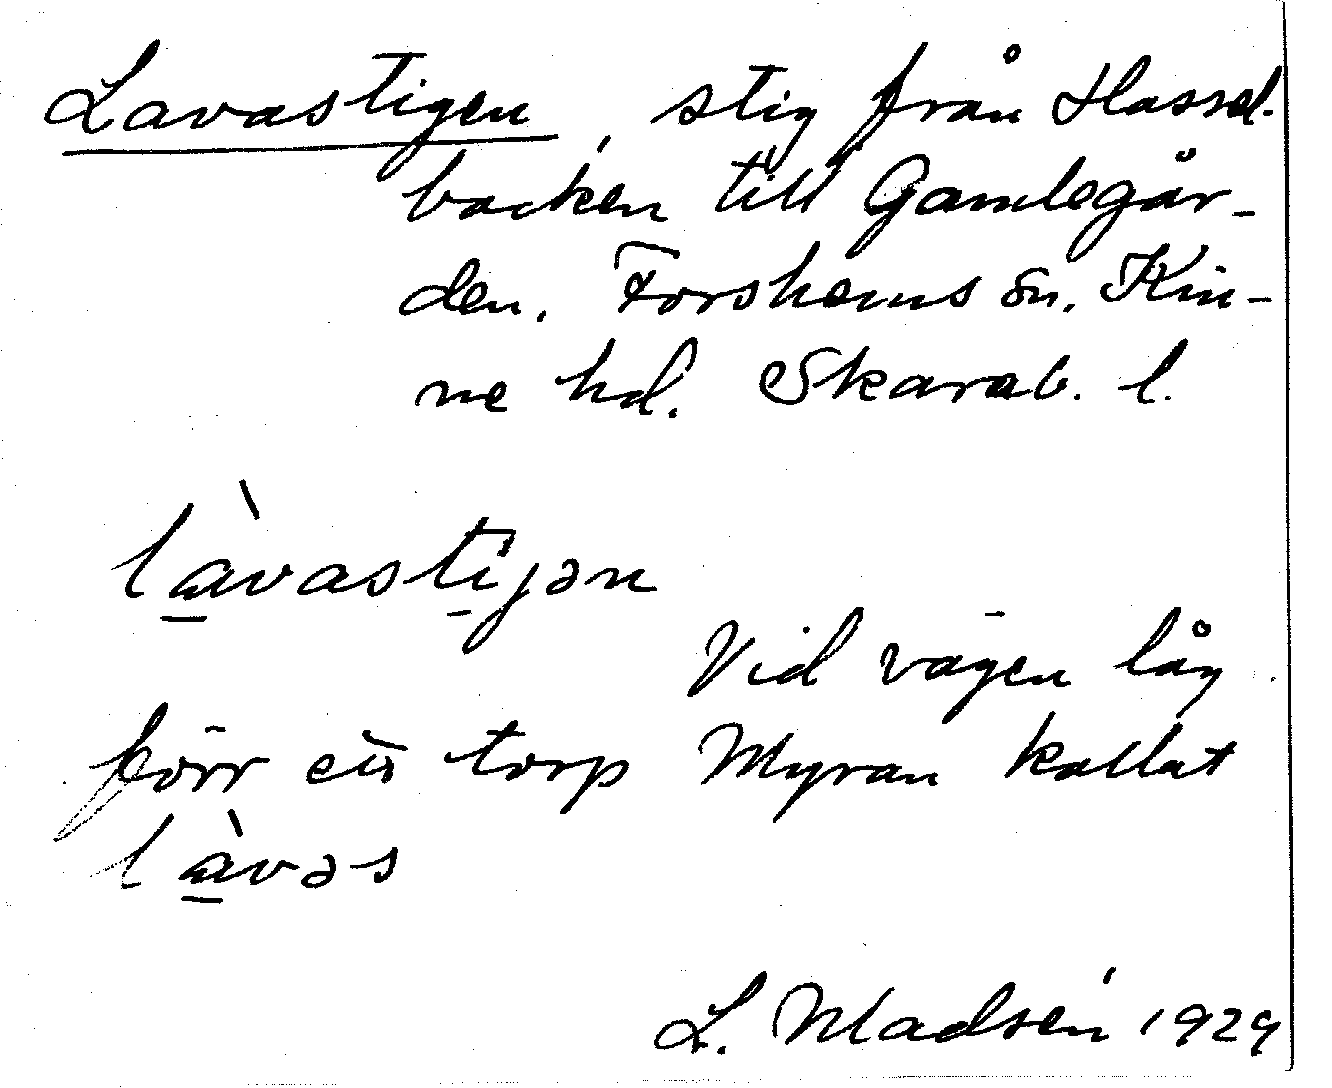 Lavastigen, stig från Hassel-
backen till Gamlegår-
den. Forshems sn. Kin-
ne hd. Skarab. l.
làvastijən
Vid vägen låg
förr ett torp Myran kallat
làvəs
L. Madsén 1929